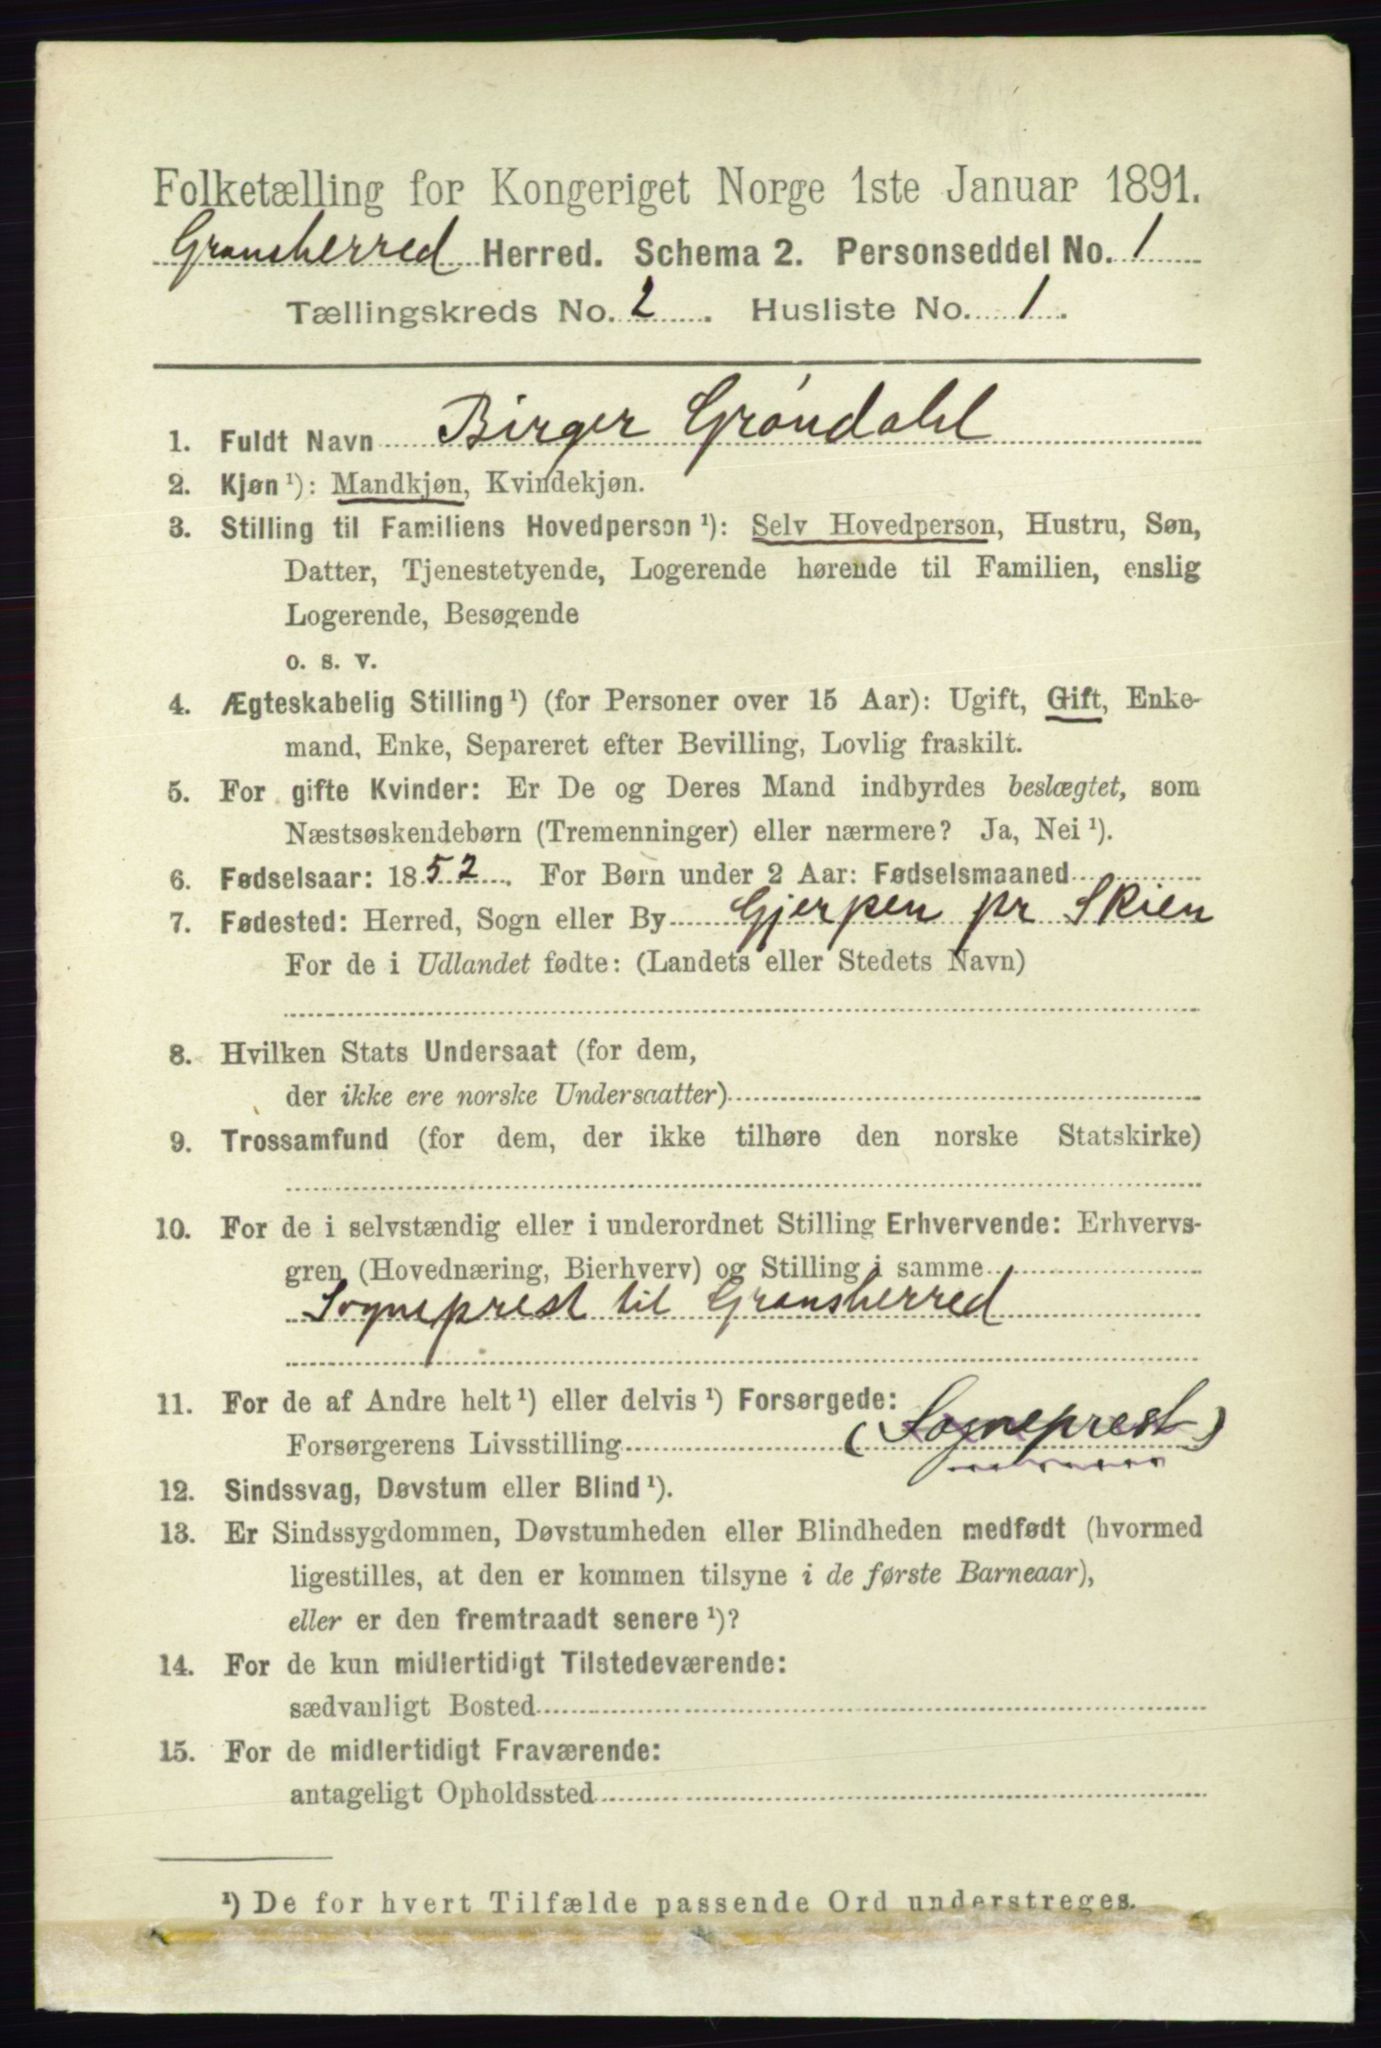 Folketælling for Kongeriget Norge 1ste Januar 1891.
Gransherred Herred. Schema 2. Personseddel No. 1
Tællingskreds No. 2. Husliste No. 1.
1. Fuldt Navn Birger Gröndahl
2. Kjøn ¹): Mandkjøn, Kvindekjøn.
3. Stilling til Familiens Hovedperson ¹): Selv Hovedperson, Hustru, Søn,
Datter, Tjenestetyende, Logerende hørende til Familien, enslig
Logerende, Besøgende
o. s. v.
4. Ægteskabelig Stilling ¹) (for Personer over 15 Aar): Ugift, Gift, Enke-
mand, Enke, Separeret efter Bevilling, Lovlig fraskilt.
5. For gifte Kvinder: Er De og Deres Mand indbyrdes beslægtet, som
Næstsøskendebørn (Tremenninger) eller nærmere? Ja, Nei ¹).
6. Fødselsaar: 1852. For Børn under 2 Aar: Fødselsmaaned
7. Fødested: Herred, Sogn eller By Gjerpen pr Skien
For de i Udlandet fødte: (Landets eller Stedets Navn)
8. Hvilken Stats Undersaat (for dem,
der ikke ere norske Undersaatter)
9. Trossamfund (for dem, der ikke tilhøre den norske Statskirke)
10. For de i selvstændig eller i underordnet Stilling Erhvervende: Erhvervs-
gren (Hovednæring, Bierhverv) og Stilling i samme
Sogneprest til Gransherred
11. For de af Andre helt ¹) eller delvis ¹) Forsørgede:
Forsørgerens Livsstilling (Sogneprest)
12. Sindssvag, Døvstum eller Blind ¹).
13. Er Sindssygdommen, Døvstumheden eller Blindheden medfødt (hvormed
ligestilles, at den er kommen tilsyne i de første Barneaar),
eller er den fremtraadt senere ¹)?
14. For de kun midlertidigt Tilstedeværende:
sædvanligt Bosted
15. For de midlertidigt Fraværende:
antageligt Opholdssted
¹) De for hvert Tilfælde passende Ord understreges.